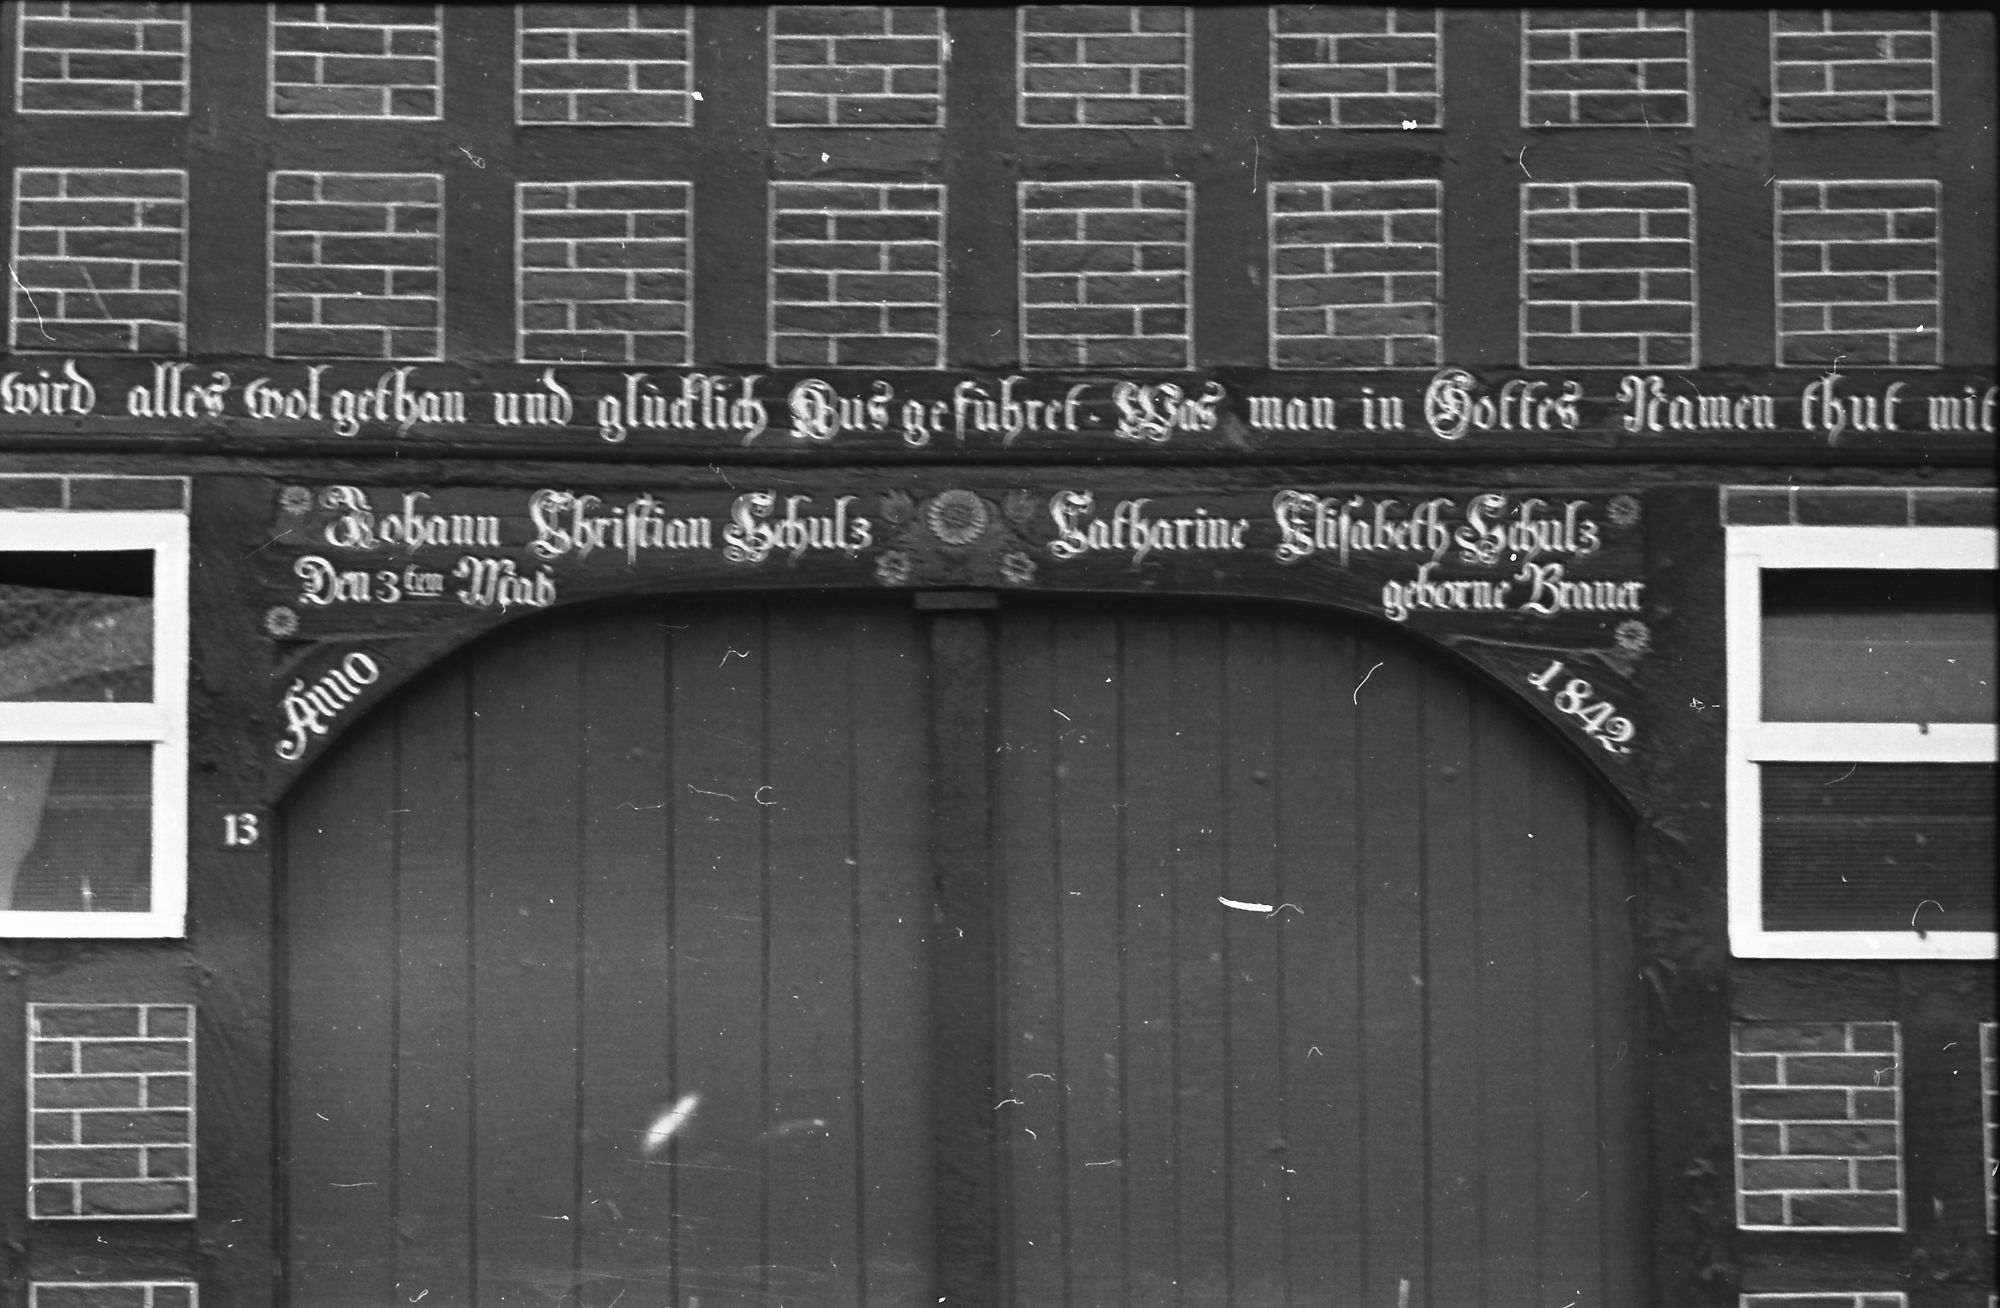 wird alles wol gethan und glücklich Aus geführet. Was man in Gottes Namen thut mit
Johann Christian Schulz Catharine Elisabeth Schulz
Den 3ten Maÿ geborne Brauer
Anno 1842.
13